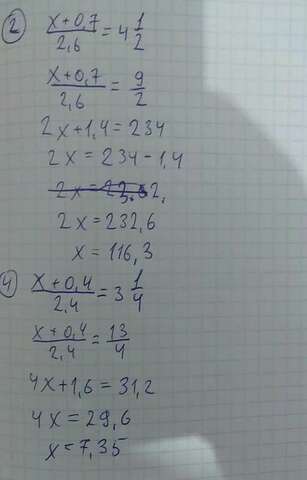 2) x+0,7/2,6 = 4 1/2
x+0,7/2,6 = 9/2
2x+1,4=234
2x = 234-1,4
2x=232,6
x=116,3
4) x+0,4/2,4 = 3 1/4
x+0,4/2,4 = 13/4
4x+1,6=31,2
4x=29,6
x=7,35